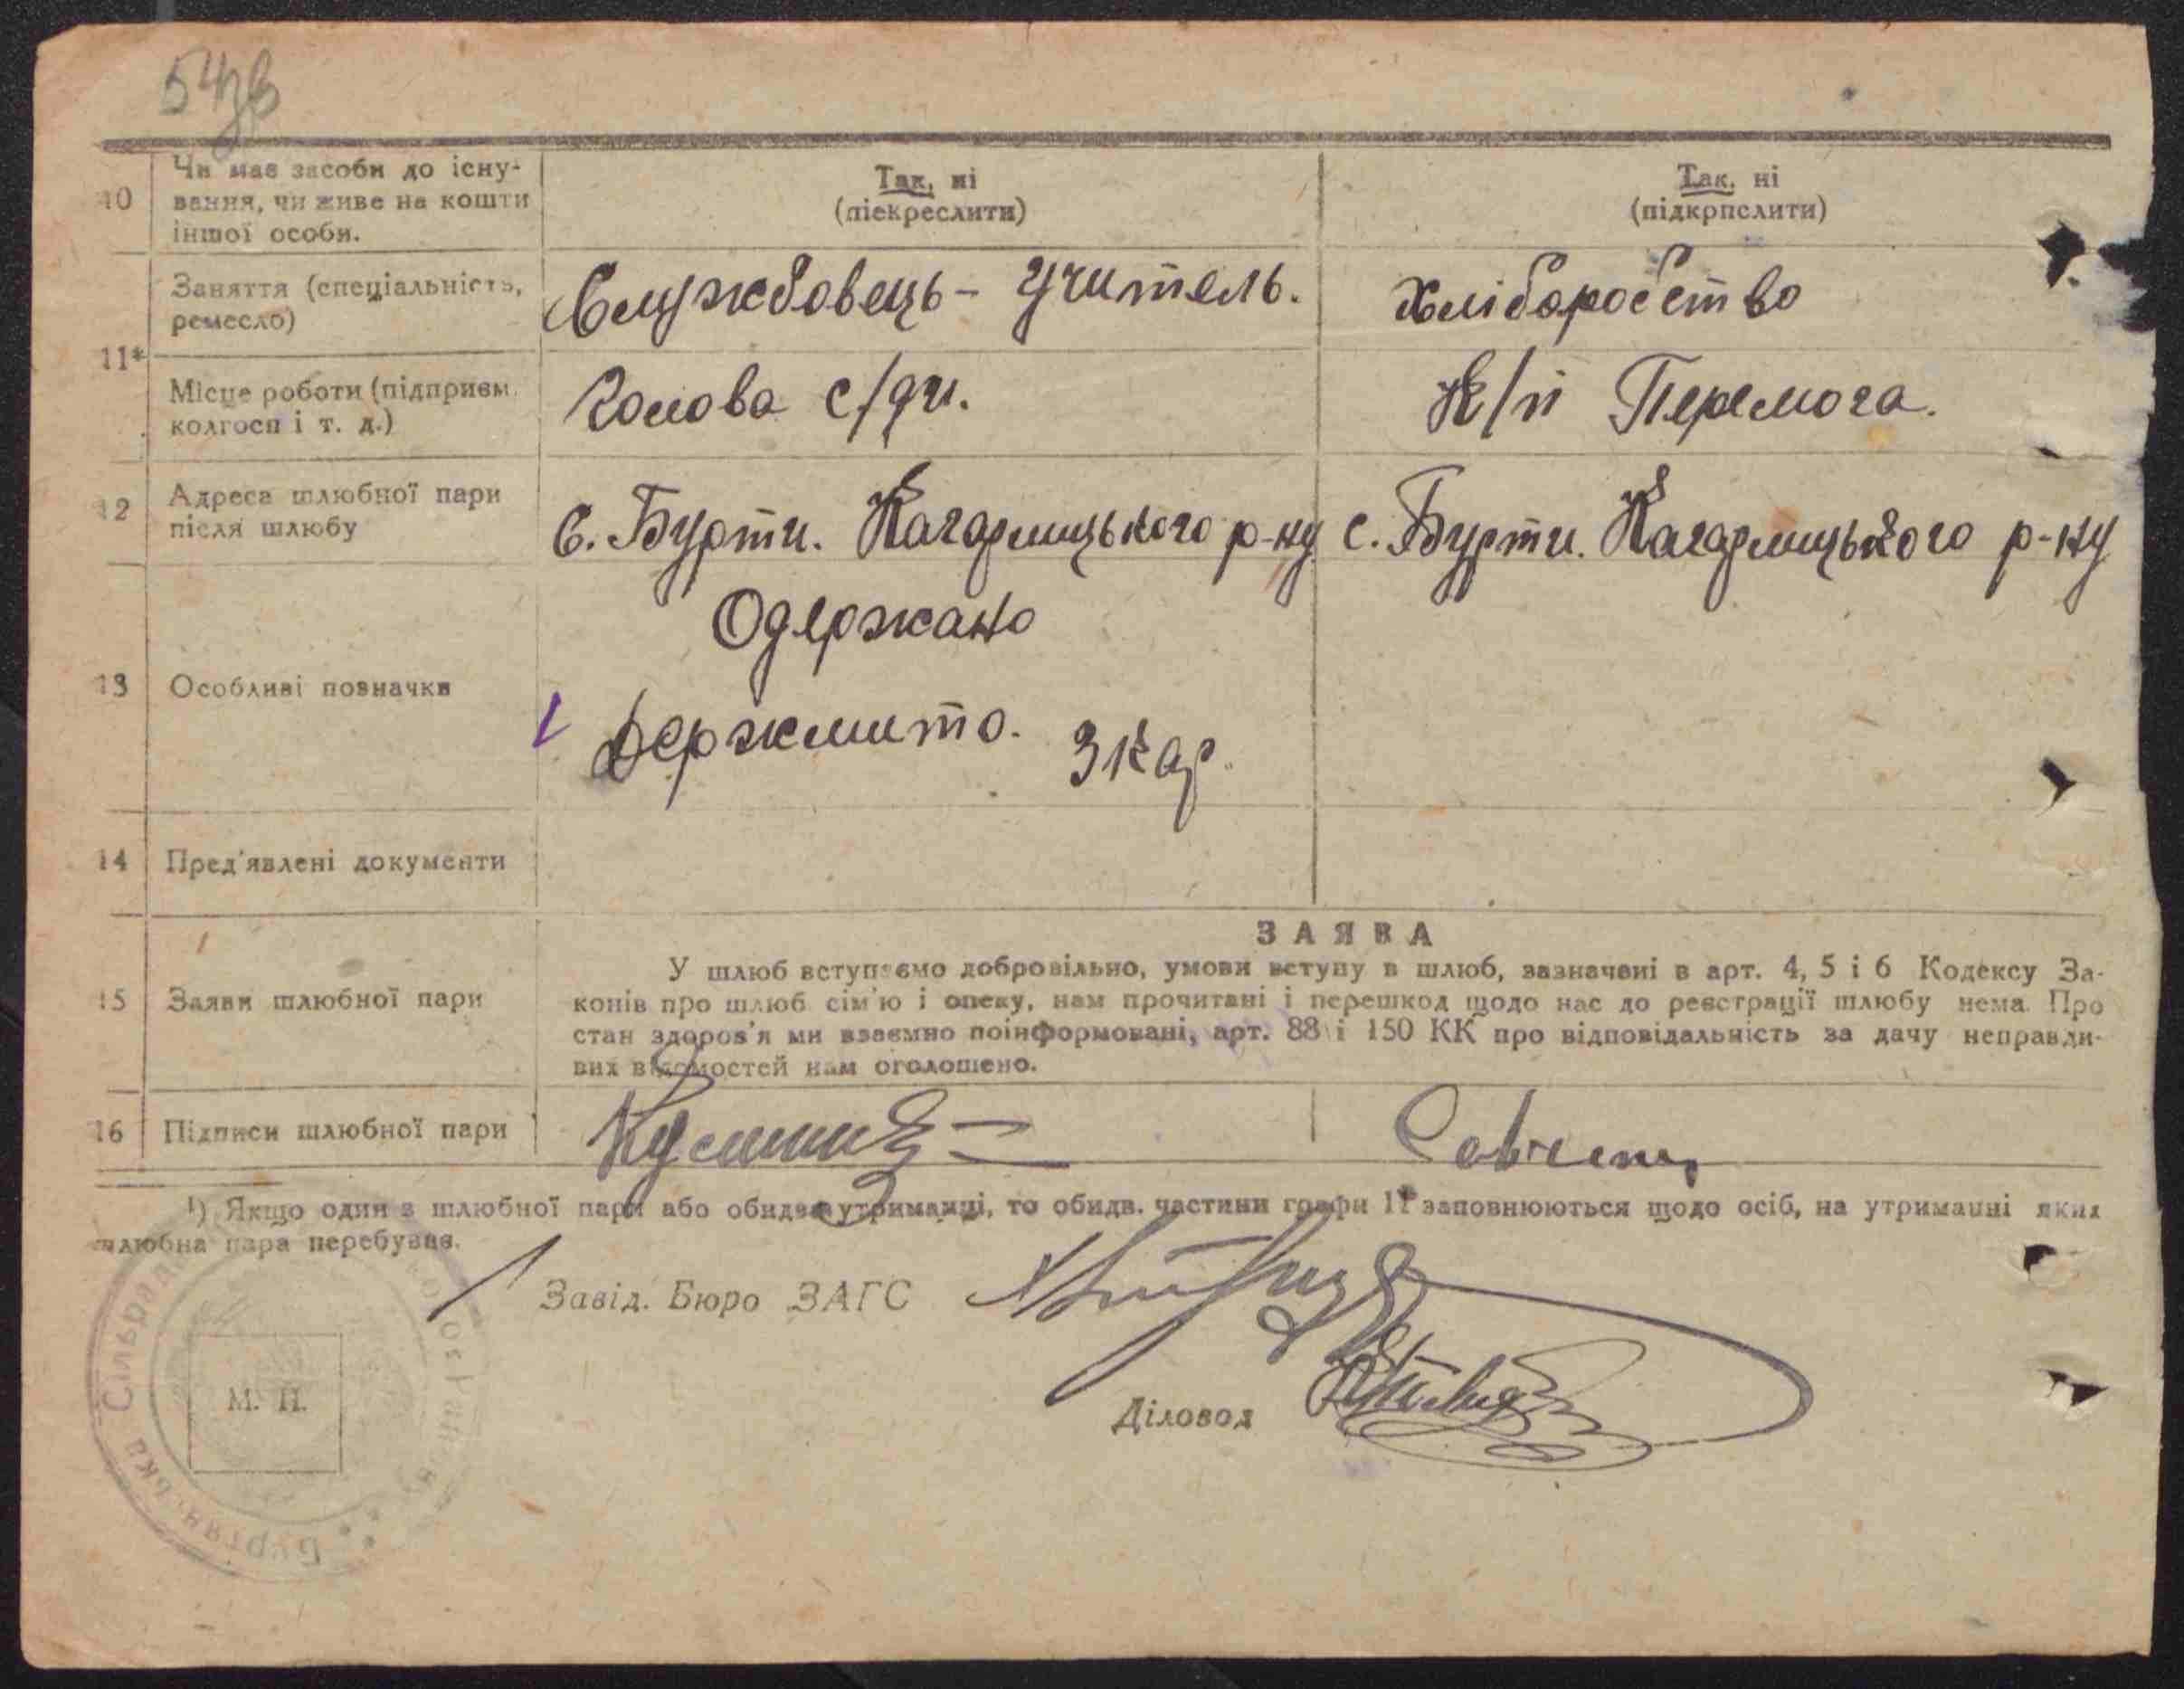 54зв
10
Чи має засоби до існу-
вання, чи живе на кошти
іншої особи.
Так, ні
(піекреслити)
Так, ні
(підкрпслити)
11*
Заняття (спеціальність,
ремесло)
Службовець - Учитель.
Хліборобство
Місце роботи (підприєм.
колгосп і т. д.)
Голова с/ди.
К/п Перемога.
12
Адреса шлюбної пари
після шлюбу
С. Бурти. Кагарлицького р-ну
с. Бурти. Кагарлицького р-ну
13
Особливі позначки
Одержано
Держмито. 3 кар.
14
Пред'явлені документи
ЗАЯВА
15
Заяви шлюбної пари
У шлюб вступаємо добровільно, умови вступу в шлюб, зазначені в арт. 4, 5 і 6 Кодексу За-
конів про шлюб сім'ю і опеку, нам прочитані і перешкод щодо нас до реєстрації шлюбу нема. Про
стан здоров'я ми взаємно поінформовані, арт. 88 і 150 КК про відповідальність за дачу неправди-
вих відомостей нам оголошено.
16
Підписи шлюбної пари
¹) Якщо один з шлюбної пари або обидва утриманці, то обидв. частини графи 11 заповнюються щодо осіб, на утриманні яких
шлюбна пара перебуває.
Завід. Бюро ЗАГС
Діловод
М. П.
Сільрада